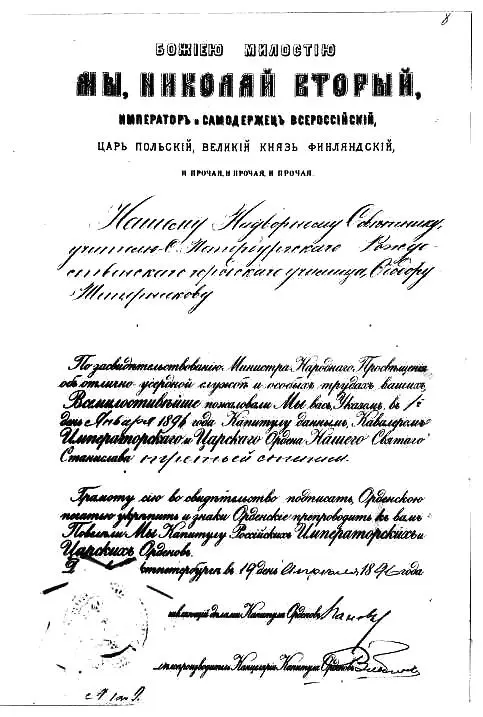 8
БОЖІЕЮ МИЛОСТІЮ
МЫ, НИКОЛАЙ ВТОРЫЙ,
ИМПЕРАТОРЪ и САМОДЕРЖЕЦЪ ВСЕРОССІЙСКІЙ,
ЦАРЬ ПОЛЬСКІЙ, ВЕЛИКІЙ КНЯЗЬ ФИНЛЯНДСКІЙ,
И ПРОЧАЯ, И ПРОЧАЯ, И ПРОЧАЯ.
Нашему Надворному Совѣтнику,
учителю С. Петербургскаго Рожде-
ственскаго городскаго училища, Ѳедору
По засвидѣтельствованію Министра Народнаго Просвѣщенія
объ отлично усердной службѣ и особыхъ трудахъ вашихъ,
Всемилостивѣйше пожаловали Мы васъ, Указомъ, въ 1й
день Января 1896 года Капитулу даннымъ, Кавалеромъ
Императорскаго и Царскаго Ордена Нашего Святаго
Станислава третьей степени.
Грамоту сію во свидѣтельство подписать, Орденскою
печатью укрѣпить и знаки Орденскіе препроводить къ вамъ
Повелѣли Мы Капитулу Россійскихъ Императорскихъ и
Царскихъ Орденовъ.
въ 19 день Апрѣля 1896 года
дѣлами Капитула Орденовъ
Канцеляріи Капитула Орденовъ